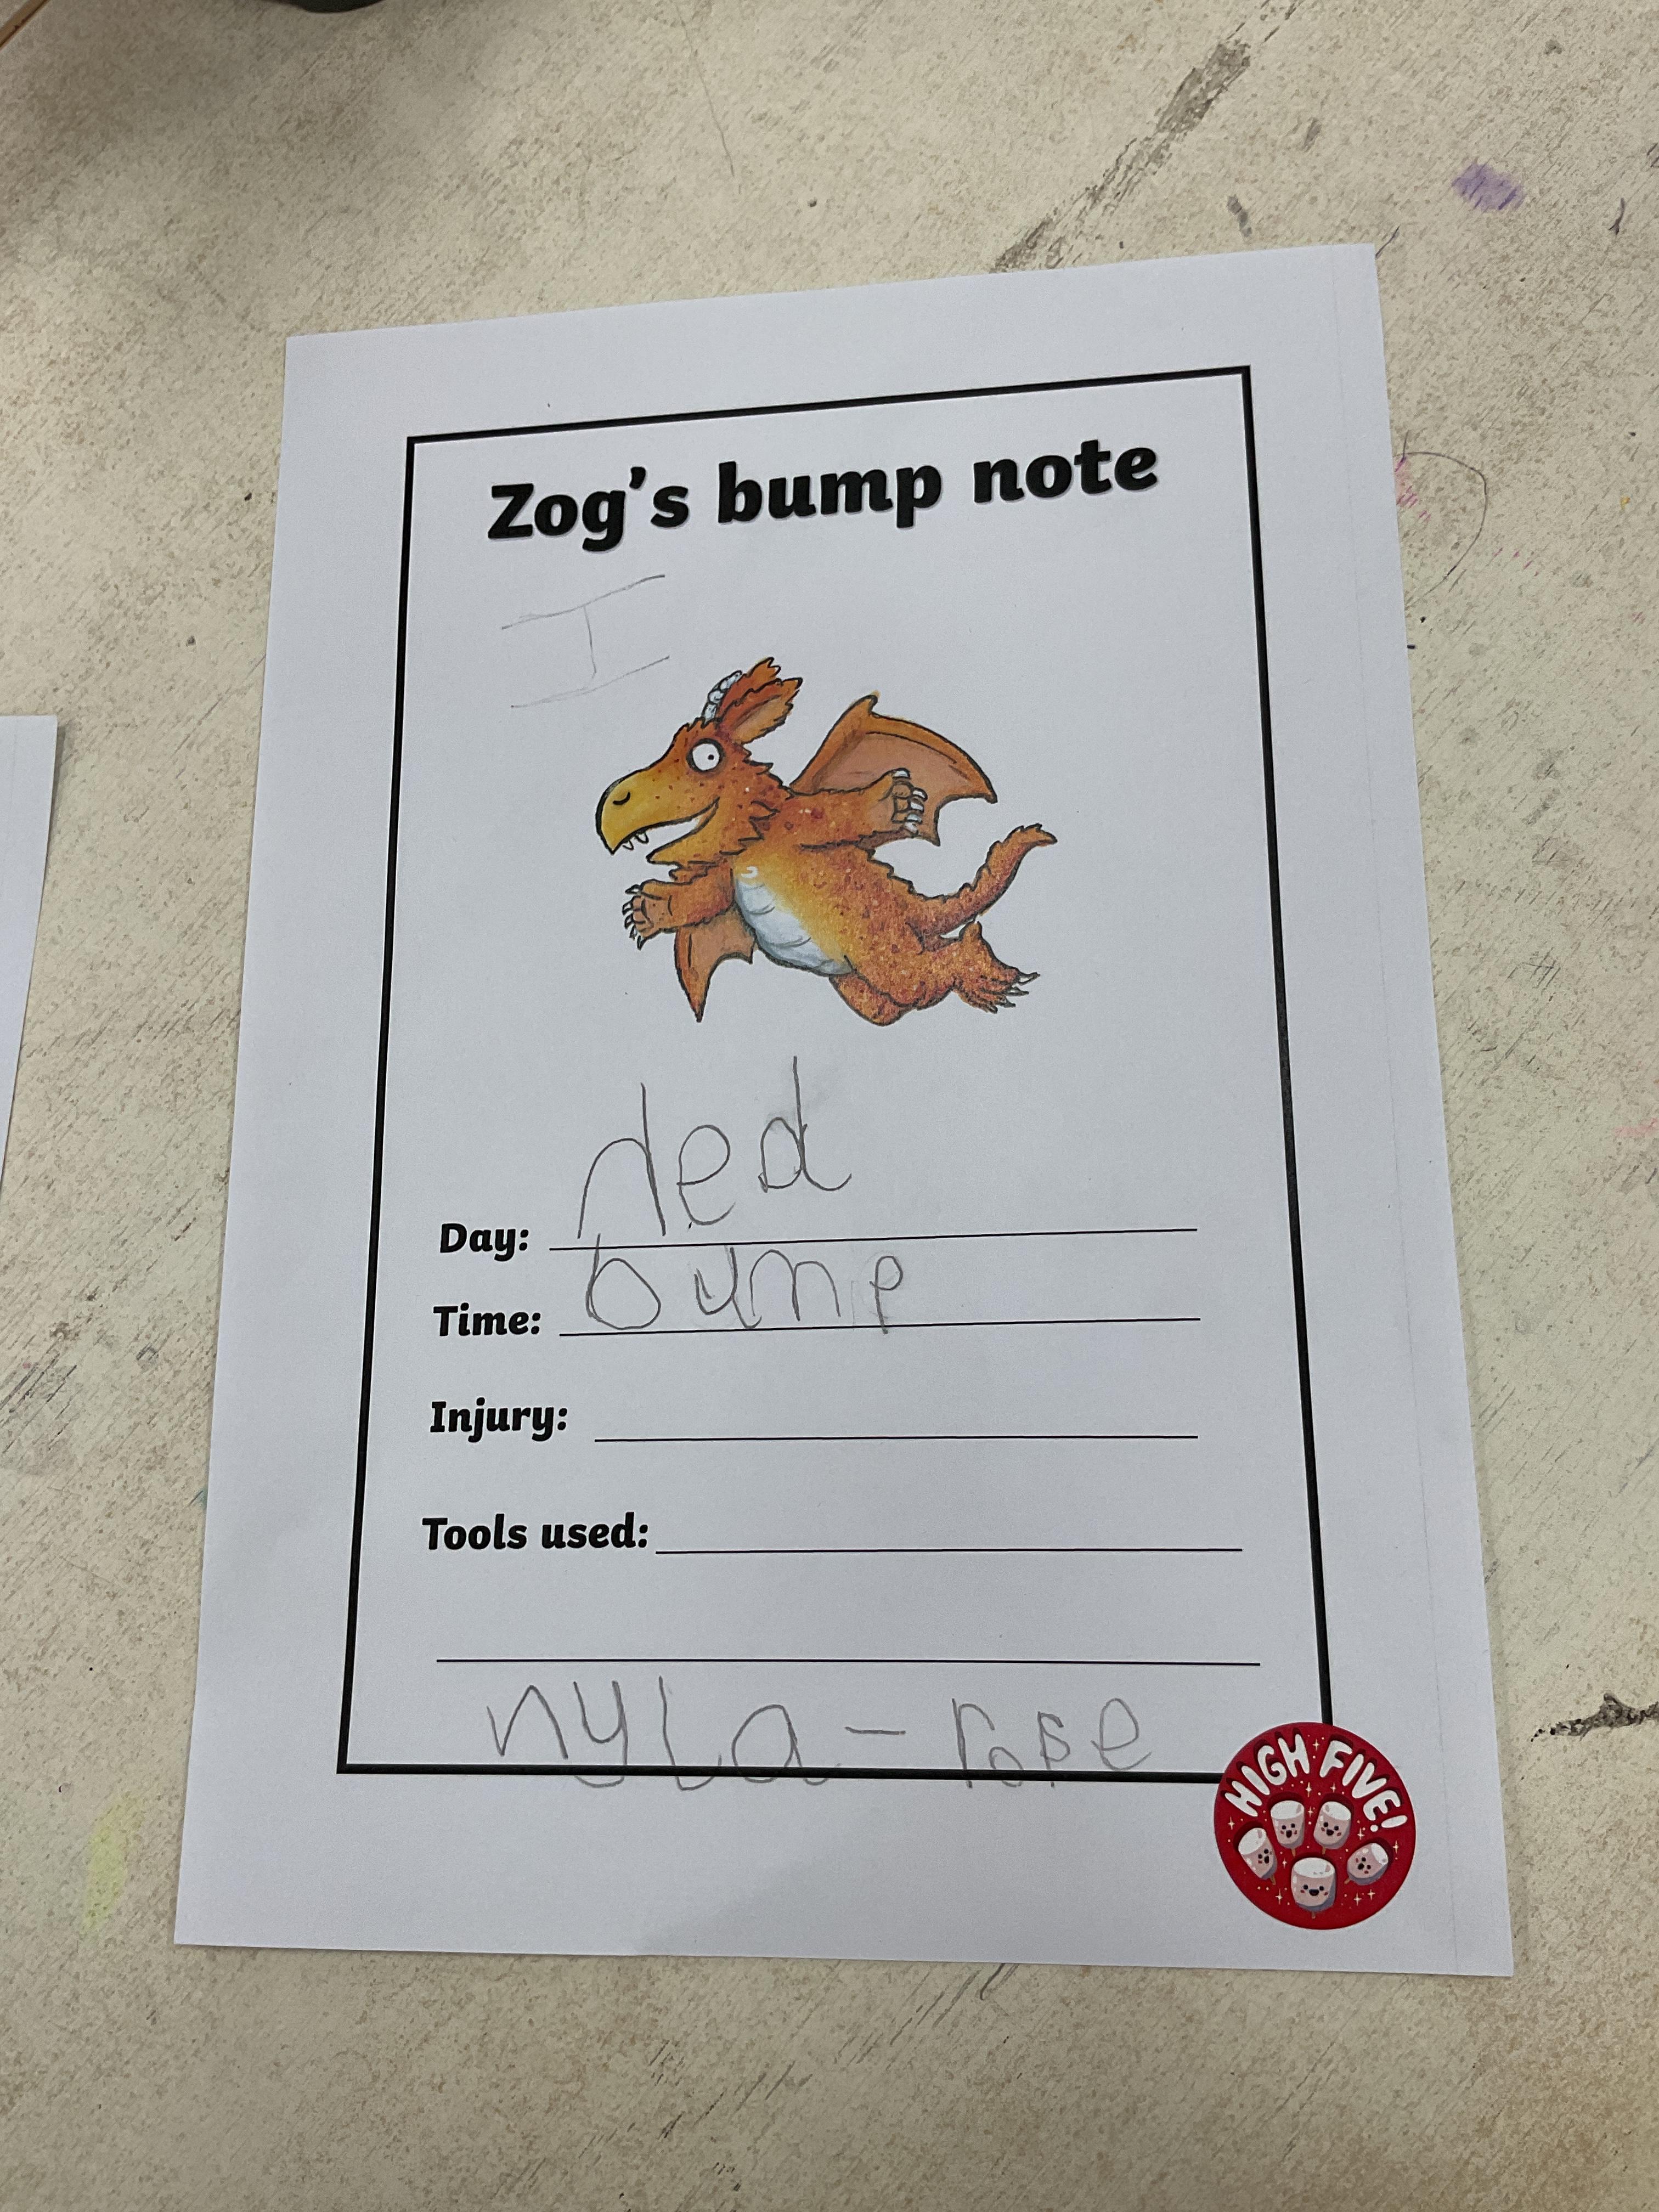 Zog's bump note
I
hed
Day:
bump
Time:
Injury:
Tools used:
nyla-rose
HIGH FIVE!